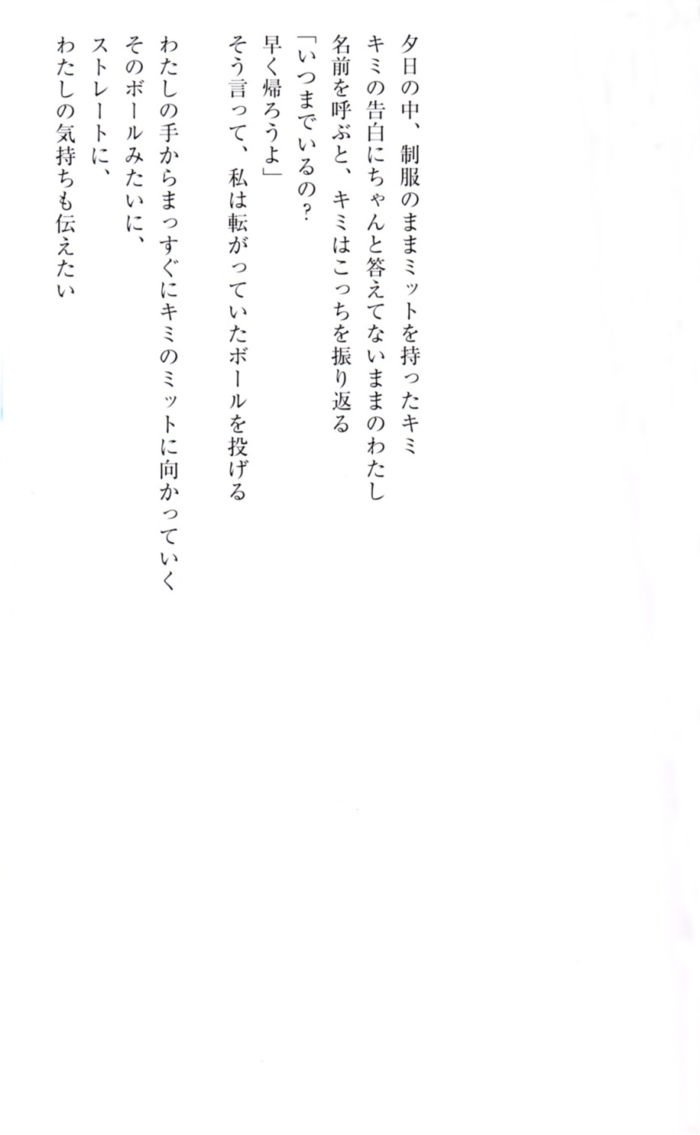 夕日の中、制服のままミットを持ったキミ
キミの告白にちゃんと答えてないままのわたし
名前を呼ぶと、キミはこっちを振り返る
「いつまでいるの？
早く帰ろうよ」
そう言って、私は転がっていたボールを投げる
わたしの手からまっすぐにキミのミットに向かっていく
そのボールみたいに、
ストレートに、
わたしの気持ちも伝えたい